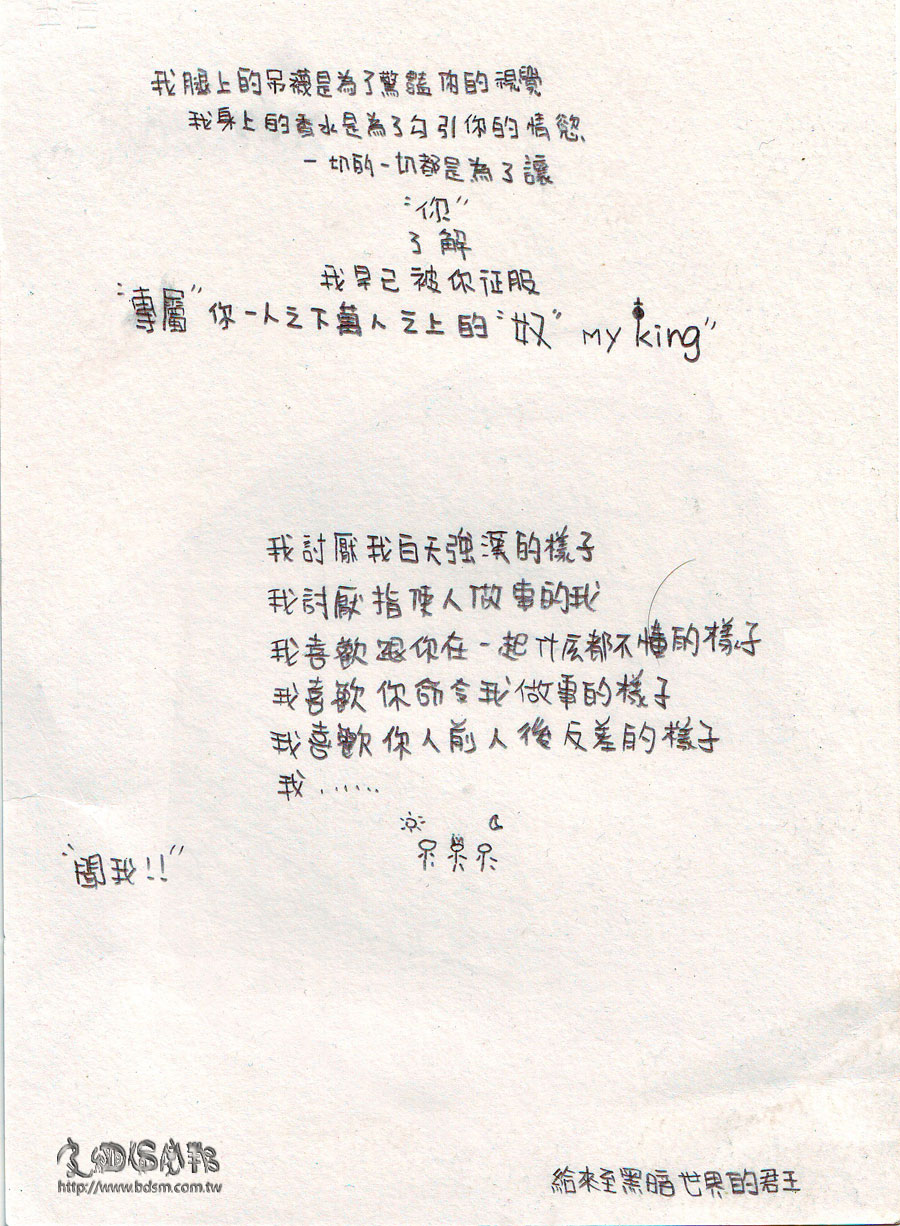 我腿上的吊襪是為了驚豔你的視覺
我身上的香水是為了勾引你的情慾
一切的一切都是為了讓
"你"
了解
我早已被你征服
"專屬"你一人之下萬人之上的"奴" my king"
我討厭我白天強漢的樣子
我討厭指使人做事的我
我喜歡跟你在一起什広都不懂的樣子
我喜歡你命令我做事的樣子
我喜歡你人前人後反差的樣子
我......
呆呆呆
"聞我!!"
http://www.bdsm.com.tw
給來至黑暗世界的君王